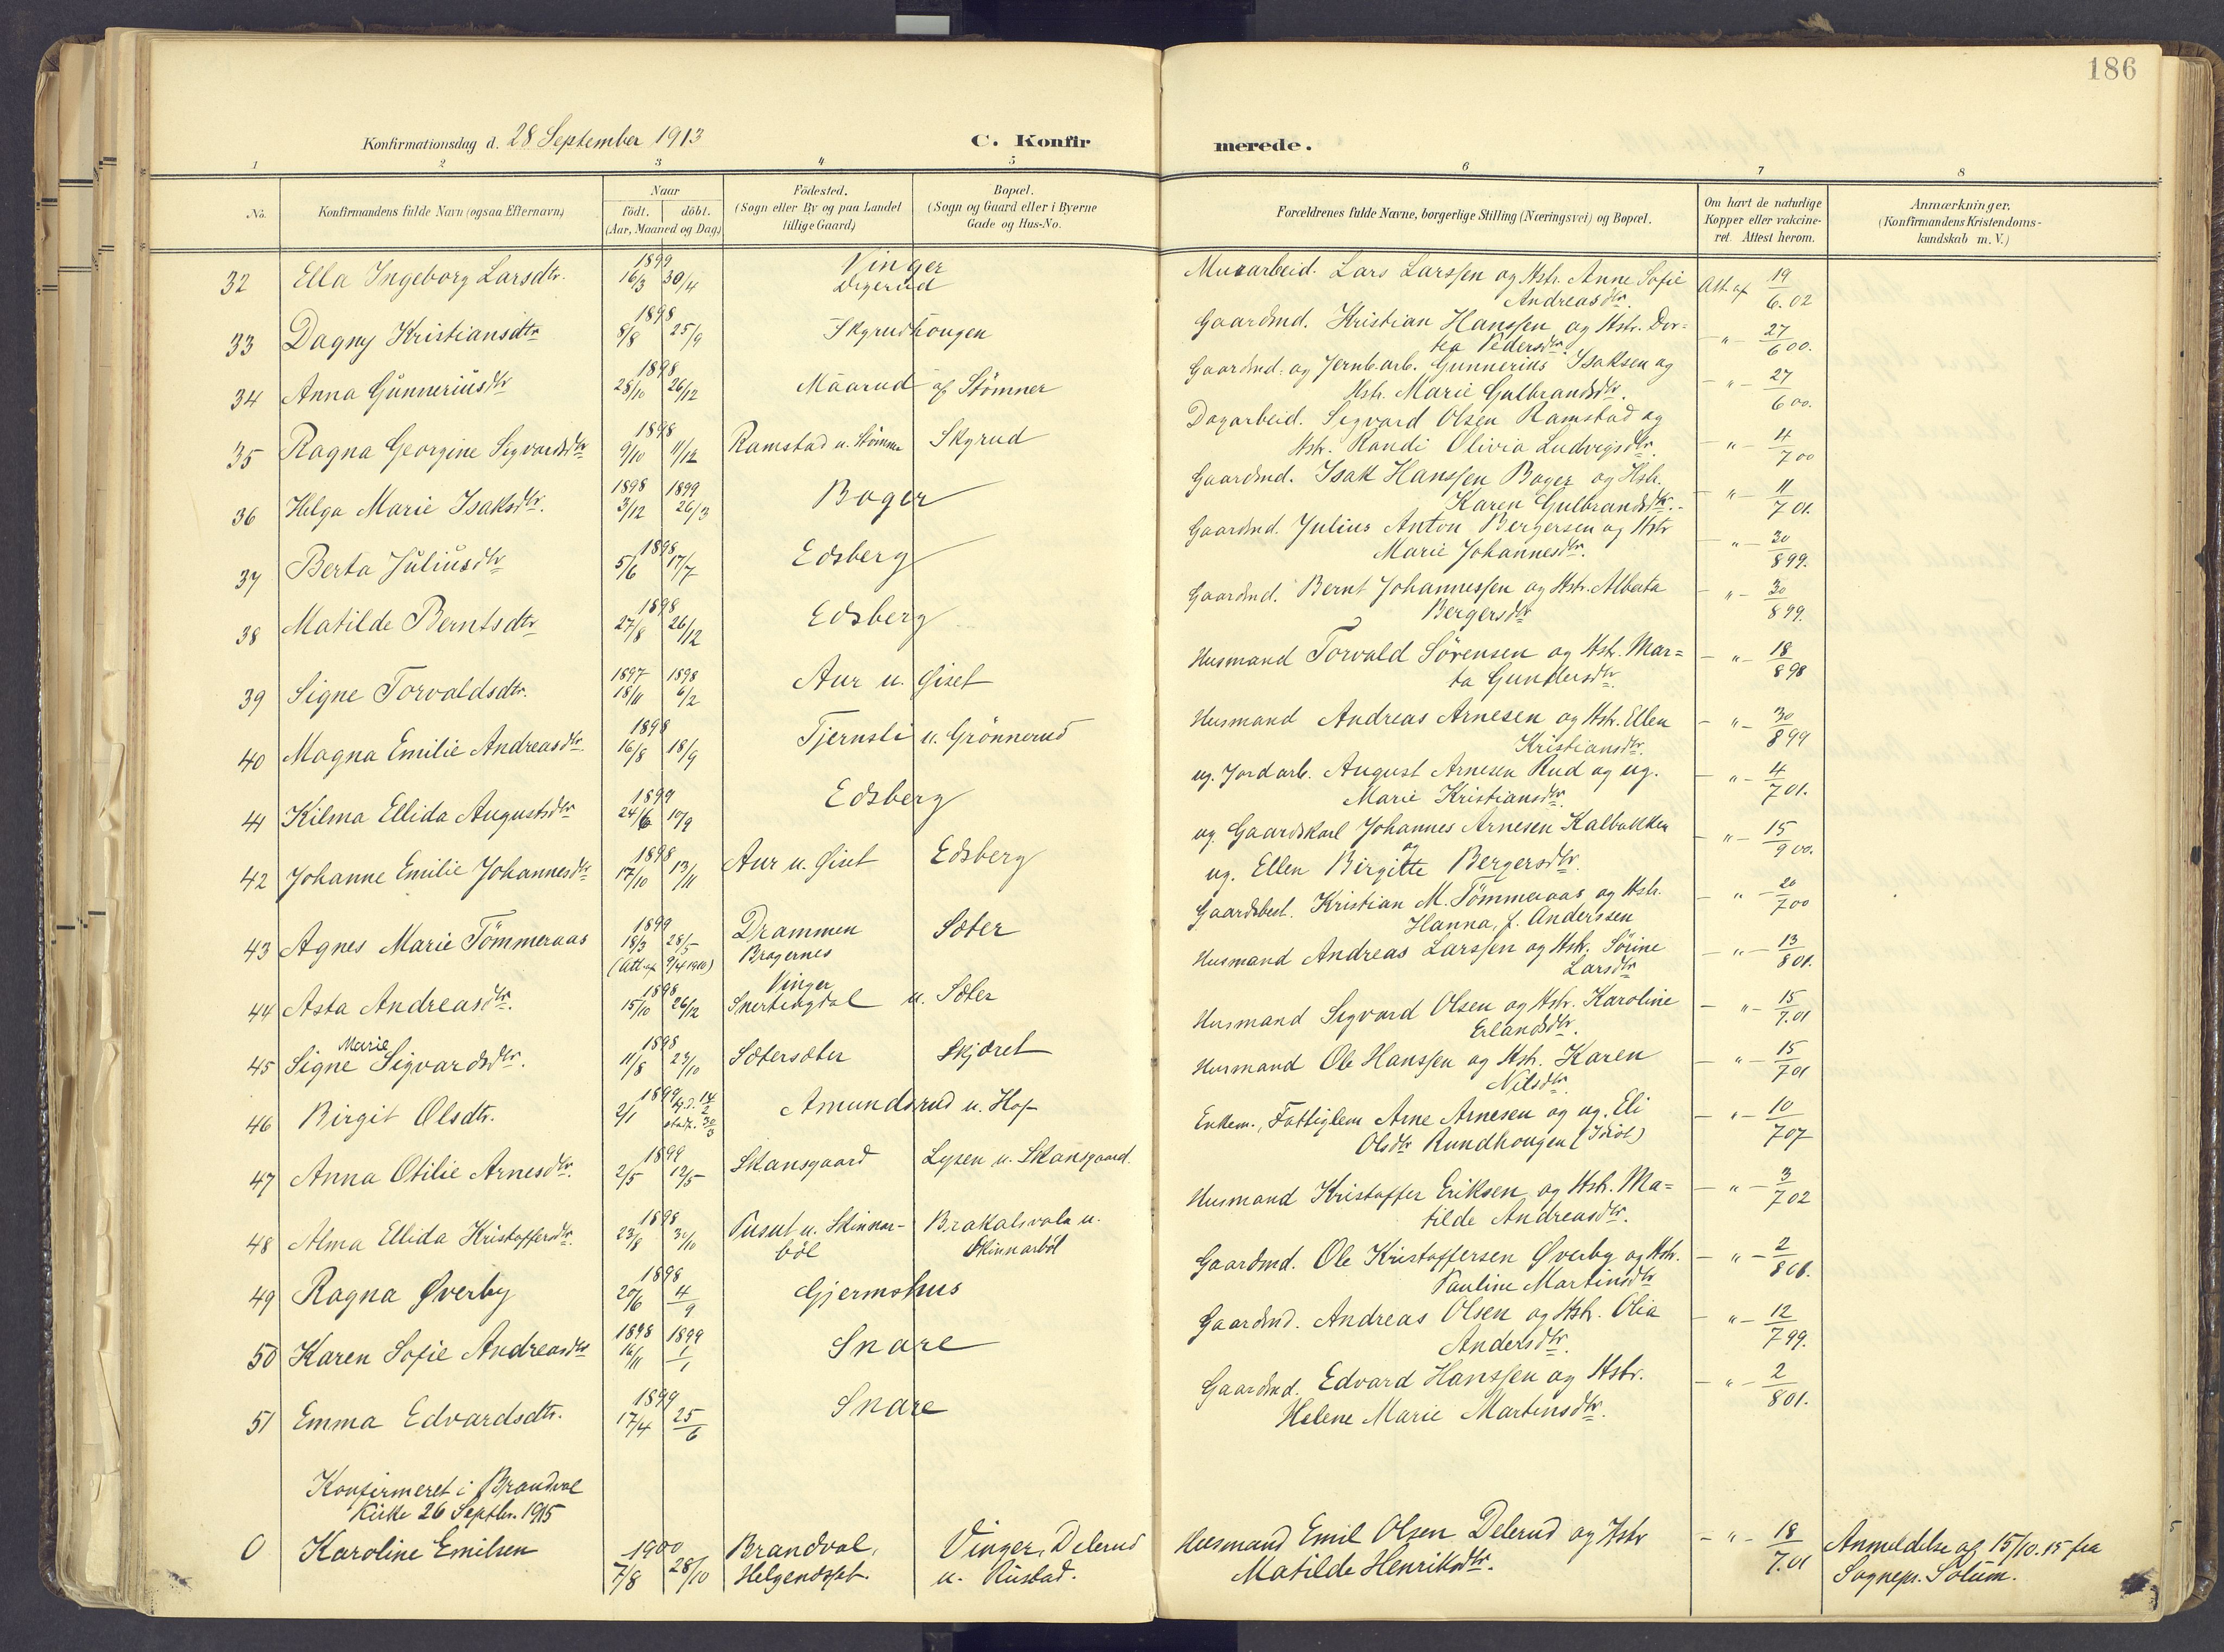 186
Konfirmationsdag d. 28 September 1913
C. Konfir
merede.
1 2 3 4 5 6 7 8
No. Konfirmandens fulde Navn (ogsaa Efternavn) Naar födt. döbt. (Aar, Maaned og Dag) Födested. (Sogn eller By og paa Landet tillige Gaard) Bopæl. (Sogn og Gaard eller i Byerne Gade og Hus-No. Forældrenes fulde Navne, borgerlige Stilling (Næringsvei) og Bopæl. Om havt de naturlige Kopper eller vakcineret. Attest herom. Anmærkninger. (Konfirmandens Kristendomskundskab m. V.)
32 Ella Ingeborg Larsdtr. 1899 16/3 30/4 Vinger Digerud Murarbeid. Lars Larssen og Hstr. Anne Sofie Andreasdtr. Att. af 19/6.02
33 Dagny Kristiansdtr 1898 8/8 25/9 Skyrudhougen Gaardmd. Kristian Hanssen og Hstr. Dor=
tea Pedersdtr. - " - 27/6 00.
34 Anna Gunneriusdtr 1898 28/10 26/12 Maarud af Stömner Gaardmd. og Jernb.arb. Gunnerius Isaksen og
Hstr. Marie Gulbrandsdtr. - " - 27/6 00.
35 Ragna Georgine Sigvardsdtr 1898 9/10 11/12 Ramstad u. Stömner Skyrud Dagarbeid. Sigvard Olsen Ramstad og
Hstr. Randi Olivia Ludvigsdtr. - " - 4/7 00
36 Helga Marie Isaksdtr. 1898 3/12 1899 26/3 Boger Gaardmd. Isak Hanssen Boger og Hstr.
Karen Gulbrandsdtr. - " - 11/7 01.
37 Berta Juliusdtr 1898 5/6 17/7 Edsberg Gaardmd. Julius Anton Bergersen og Hstr
Marie Johannesdtr. - " - 30/8 99.
38 Matilde Berntsdtr 1898 27/8 26/12 Edsberg Gaardmd. Bernt Johannessen og Hstr. Alberta
Bergersdtr - " - 30/8 99.
39 Signe Torvaldsdtr. 1897 18/11 1898 6/2 Aur u. Giset Husmand Torvald Sörensen og Hstr. Mar=
ta Gundersdtr. - " - 18/8 98
40 Magna Emilie Andreasdtr. 1898 16/8 18/9 Tjernsli u. Grönnerud Husmand Andreas Arnesen og Hstr. Ellen
Kristiansdtr. - " - 30/8 99
41 Kilma Ellida Augustsdtr 1899 24/6 10/9 Edsberg ug. Jordarb. August Arnesen Rud og ug.
Marie Kristiansdtr. - " - 4/7 01.
42 Johanne Emilie Johannesdtr 1898 17/10 13/11 Aur u. Giset Edsberg ug. Gaardskarl Johannes Arnesen Kalbakken
og
ug. Ellen Birgitte Bergersdtr. - " - 15/9 00.
43 Agnes Marie Tömmeraas 1899 18/3 28/5 (Att. af 9/4 1910) Drammen Bragernes Sæter Gaardsbest. Kristian M. Tömmeraas og Hstr.
Hanna, f. Anderssen - " - 20/7 00
44 Asta Andreasdtr. 1898 15/10 26/12 Vinger Snertingdal u. Sæter Husmand Andreas Larssen og Hstr. Sörine
Larsdtr - " - 13/8 01.
45 Signe Marie Sigvardsdtr. 1898 11/8 23/10 Sætersæter Skjæret Husmand Sigvard Olsen og Hstr. Karoline
Erlandsdtr. - " - 15/7.01
46 Birgit Olsdtr. 1899 2/1 hj.d. 14/2 stadf. 30/3 Amundsrud u. Hof Husmand Ole Hanssen og Hstr. Karen
Nilsdtr. - " - 15/7 01
47 Anna Otilie Arnesdtr. 1899 2/5 12/5 Skansgaard Lysen u. Skansgaard. Enkem., Fattiglem Arne Arnesen og ug. Eli
Olsdtr Rundhougen (Idiot) - " - 10/7 07
48 Alma Ellida Kristoffersdtr. 1898 23/8 30/10 Pusut u. Skinnar-
böl Brakalsvola u.
Skinnarböl Husmand Kristoffer Eriksen og Hstr. Ma=
tilde Andreasdtr. - " - 3/7 02
49 Ragna Øverby 1898 20/6 4/9 Gjermshus Gaardmd. Ole Kristoffersen Øverby og Hstr.
Pauline Martinsdtr - " - 2/8 01.
50 Karen Sofie Andreasdtr 1898 16/11 1899 1/1 Snare Gaardmd. Andreas Olsen og Hstr. Olia
Andersdtr. - " - 12/7 99.
51 Emma Edvardsdtr. 1899 17/4 25/6 Snare Gaardmd. Edvard Hanssen og Hstr.
Helene Marie Martinsdtr. - " - 2/8 01.
Konfirmeret i Brandval
Kirke 26 Septbr. 1915
0 Karoline Emilsen 1900 7/8 28/10 Brandval, Helgendsset. Vinger, Delerud
u. Rustad. Husmand Emil Olsen Delerud og Hstr
Matilde Henriksdtr. - " - 18/7.01 Anmeldelse af 15/10.15 fra
Sognepr. Solum.